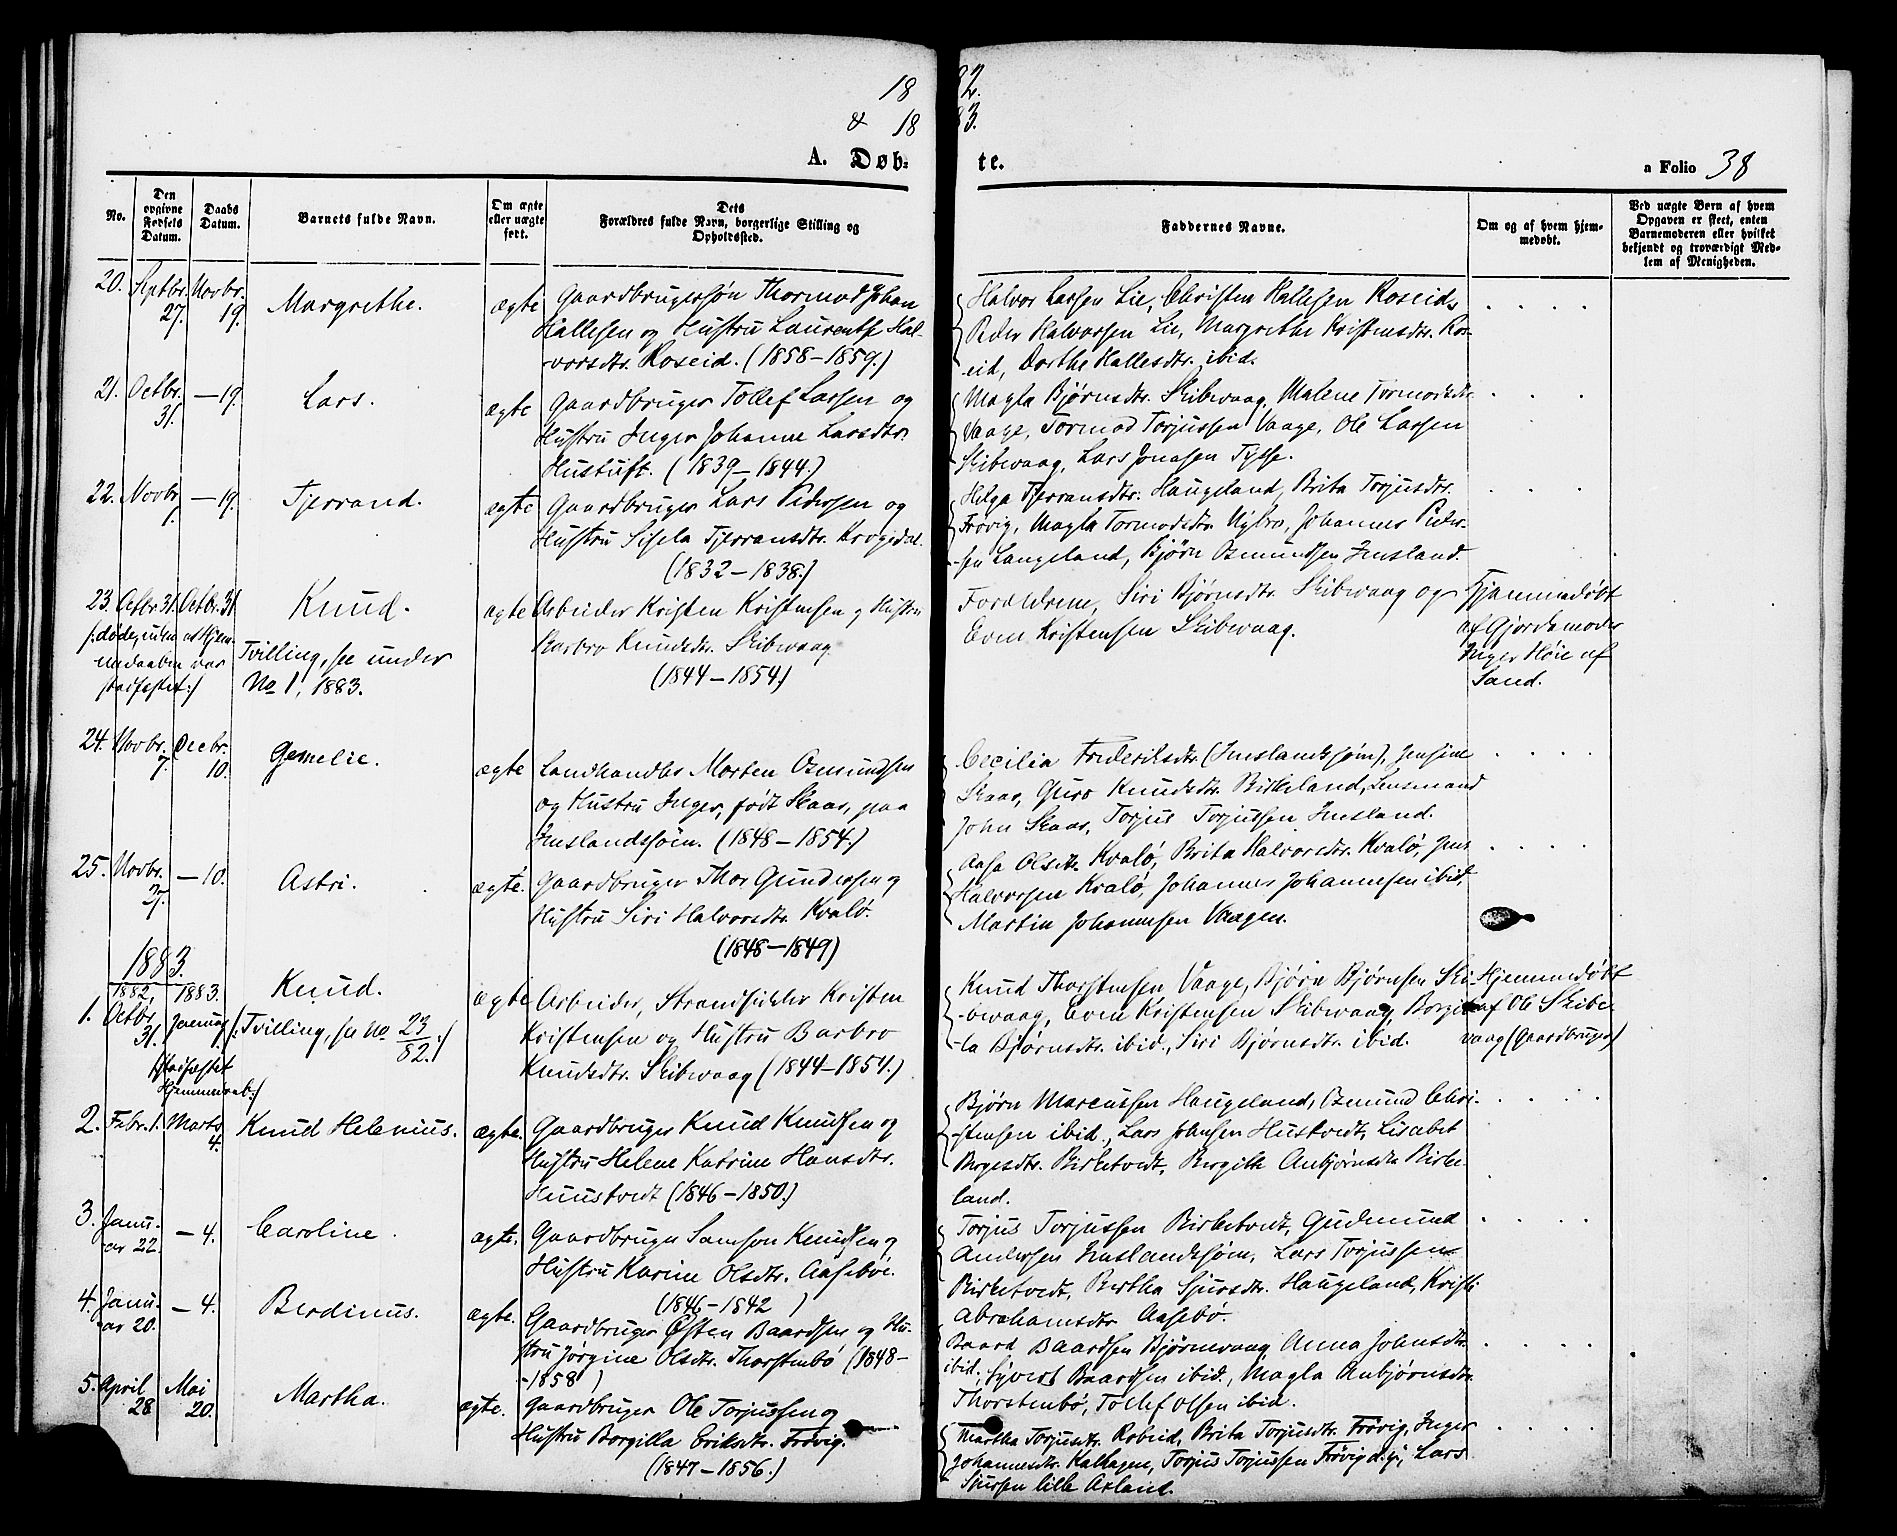 1882.
& 1883.
A. Døbte.
a Folio 38
No.
Den opgivne Fødsels Datum.
Daabs Datum.
Barnets fulde Navn.
Om ægte eller uægte født.
Dets Forældres fulde Navn, borgerlige Stilling og Opholdssted.
Faddernes Navne.
Om og af hvem hjemmedøbt.
Ved uægte Børn af hvem Opgaven er skeet, enten Barnemoderen eller hvilket bekjendt og troværdigt Medlem af Menigheden.
20. Septbr. 27. Novbr. 19. Margrethe. ægte
Gaardbrugersøn Thormod Johan
Hallesen og Hustru Laurentse Hal-
vorsdtr. Roseid. (1858-1859.)
Halvor Larsen Lie, Christen Hallesen Roseid,
Peder Halvorsen Lie, Margrethe Kristensdtr. Ros-
eid, Dorthe Hallesdtr. ibid.
21. Octbr. 31. — 19. Lars. ægte
Gaardbruger Tollef Larsen og
Hustru Inger Johanne Larsdtr.
Hustuft. (1839-1844.)
Magla Bjørnsdtr. Skibevaag, Malene Tormodsdtr.
Vaage, Tormod Torjussen Vaage, Ole Larsen
Skibevaag, Lars Jonasen
22. Novbr. 1. — 19. Tjerrand. ægte
Gaardbruger Lars Pedersen og
Hustru Sisela Tjerransdtr. Krogedal.
(1832-1838.)
Helga Tjerransdtr. Haugeland, Brita Torjusdtr.
Frøvig, Magla Tormodsdtr. Nybru, Johannes Peder-
sen Langeland, Bjørn Osmundsen Imsland.
23. Octbr. 31. Octbr. 31 Knud. ægte
/: døde, uden at Hjem-
medaaben var
stadfæstet :/
Tvilling, se under
No 1, 1883.
Arbeider Kristen Kristensen og Hustru
Barbro Knudsdtr. Skibevaag
(1844-1854.)
Forældrene, Siri Bjørnsdtr. Skibevaag og
Even Kristensen Skibevaag.
Hjemmedøbt
af Gjordemoder
Inger Høie af
Sand.
24. Novbr. 7. Decbr. 10. Gemelie. ægte
Landhandler Morten Osmundsen
og Hustru Inger, født Skaar, paa
Imslandssjøen. (1848-1854.)
Cecilia Frederiksdtr. (Imslandssjøen), Jensine
Skaar, Guro Knudsdtr. Birkeland, Lensmand
John Skaar, Torjus Torjussen Imsland.
25. Novbr. 27. — 10. Astri. ægte.
Gaardbruger Thor Gundersen og
Hustru Siri Halvorsdtr. Kvalø.
(1848-1849)
Aasa Olsdtr. Kvalø, Brita Halvorsdtr. Kvalø, Jens
Halvorsen Kvalø, Johannes Johannesen ibid,
Martin Johannesen Vaagen.
1883.
1. 1882, Octbr. 31. 1883. Januar Knud. ægte
/: Tvilling, se No 23/82. :/
(Stadfæstet
Hjemmedaab :/
Arbeider, Strandsidder Kristen
Kristensen og Hustru Barbro
Knudsdtr. Skibevaag (1844-1854.)
Knud Thorstensen Vaage, Bjørn Bjørnsen Ski-
bevaag, Even Kristensen Skibevaag, Borgil-
la Bjørnsdtr. ibid., Siri Bjørnsdtr. ibid.
Hjemmedøbt
af Ole Skibe-
vaag (Gaardbruger)
2. Febr. 1. Marts 4. Knud Helenius. ægte.
Gaardbruger Knud Knudsen og
Hustru Helene Katrine Hansdtr.
Huustvedt (1846-1850.)
Bjørn Marcussen Haugeland, Osmund Chri-
stensen ibid., Lars Johnsen Hustvedt, Lisabet
Borgesdtr. Birketvedt, Borgille Anbjørnsdtr. Birke-
land.
3. Janu-ar 22. — 4. Caroline. ægte.
Gaardbruger Samson Knudsen og
Hustru Karine Olsdtr. Aasebøe.
(1846-1842 )
Torjus Torjussen Birketvedt, Gudmund
Andersen Imslandssjøen, Lars Torjussen
Birketvedt, Bertha Sjursdtr. Haugeland, Kristi
Abrahamsdtr. Aasebø.
4. Janu-ar 20. — 4. Berdinus. ægte.
Gaardbruger Østen Baardsen og Hu-
stru Jørgine Olsdtr. Thorstenbø (1848-
-1858 )
Baard Baardsen Bjørnevaag, Anna Johnsdtr.
ibid., Syvert Baardsen ibid., Magla Anbjørnsdtr.
Thorstenbø, Tollef Olsen ibid.
5. April 28 Mai 20. Martha. ægte.
Gaardbruger Ole Torjussen og
Hustru Borgilla Eriksdtr. Frøvig.
(1847-1856.)
Martha Torjusdtr. Robeid, Brita Torjusdtr. Frøvig, Inger
Johannesdtr. Kallagen, Torjus Torjussen Frøvig d.y., Lars
Sjursen lille Asland.